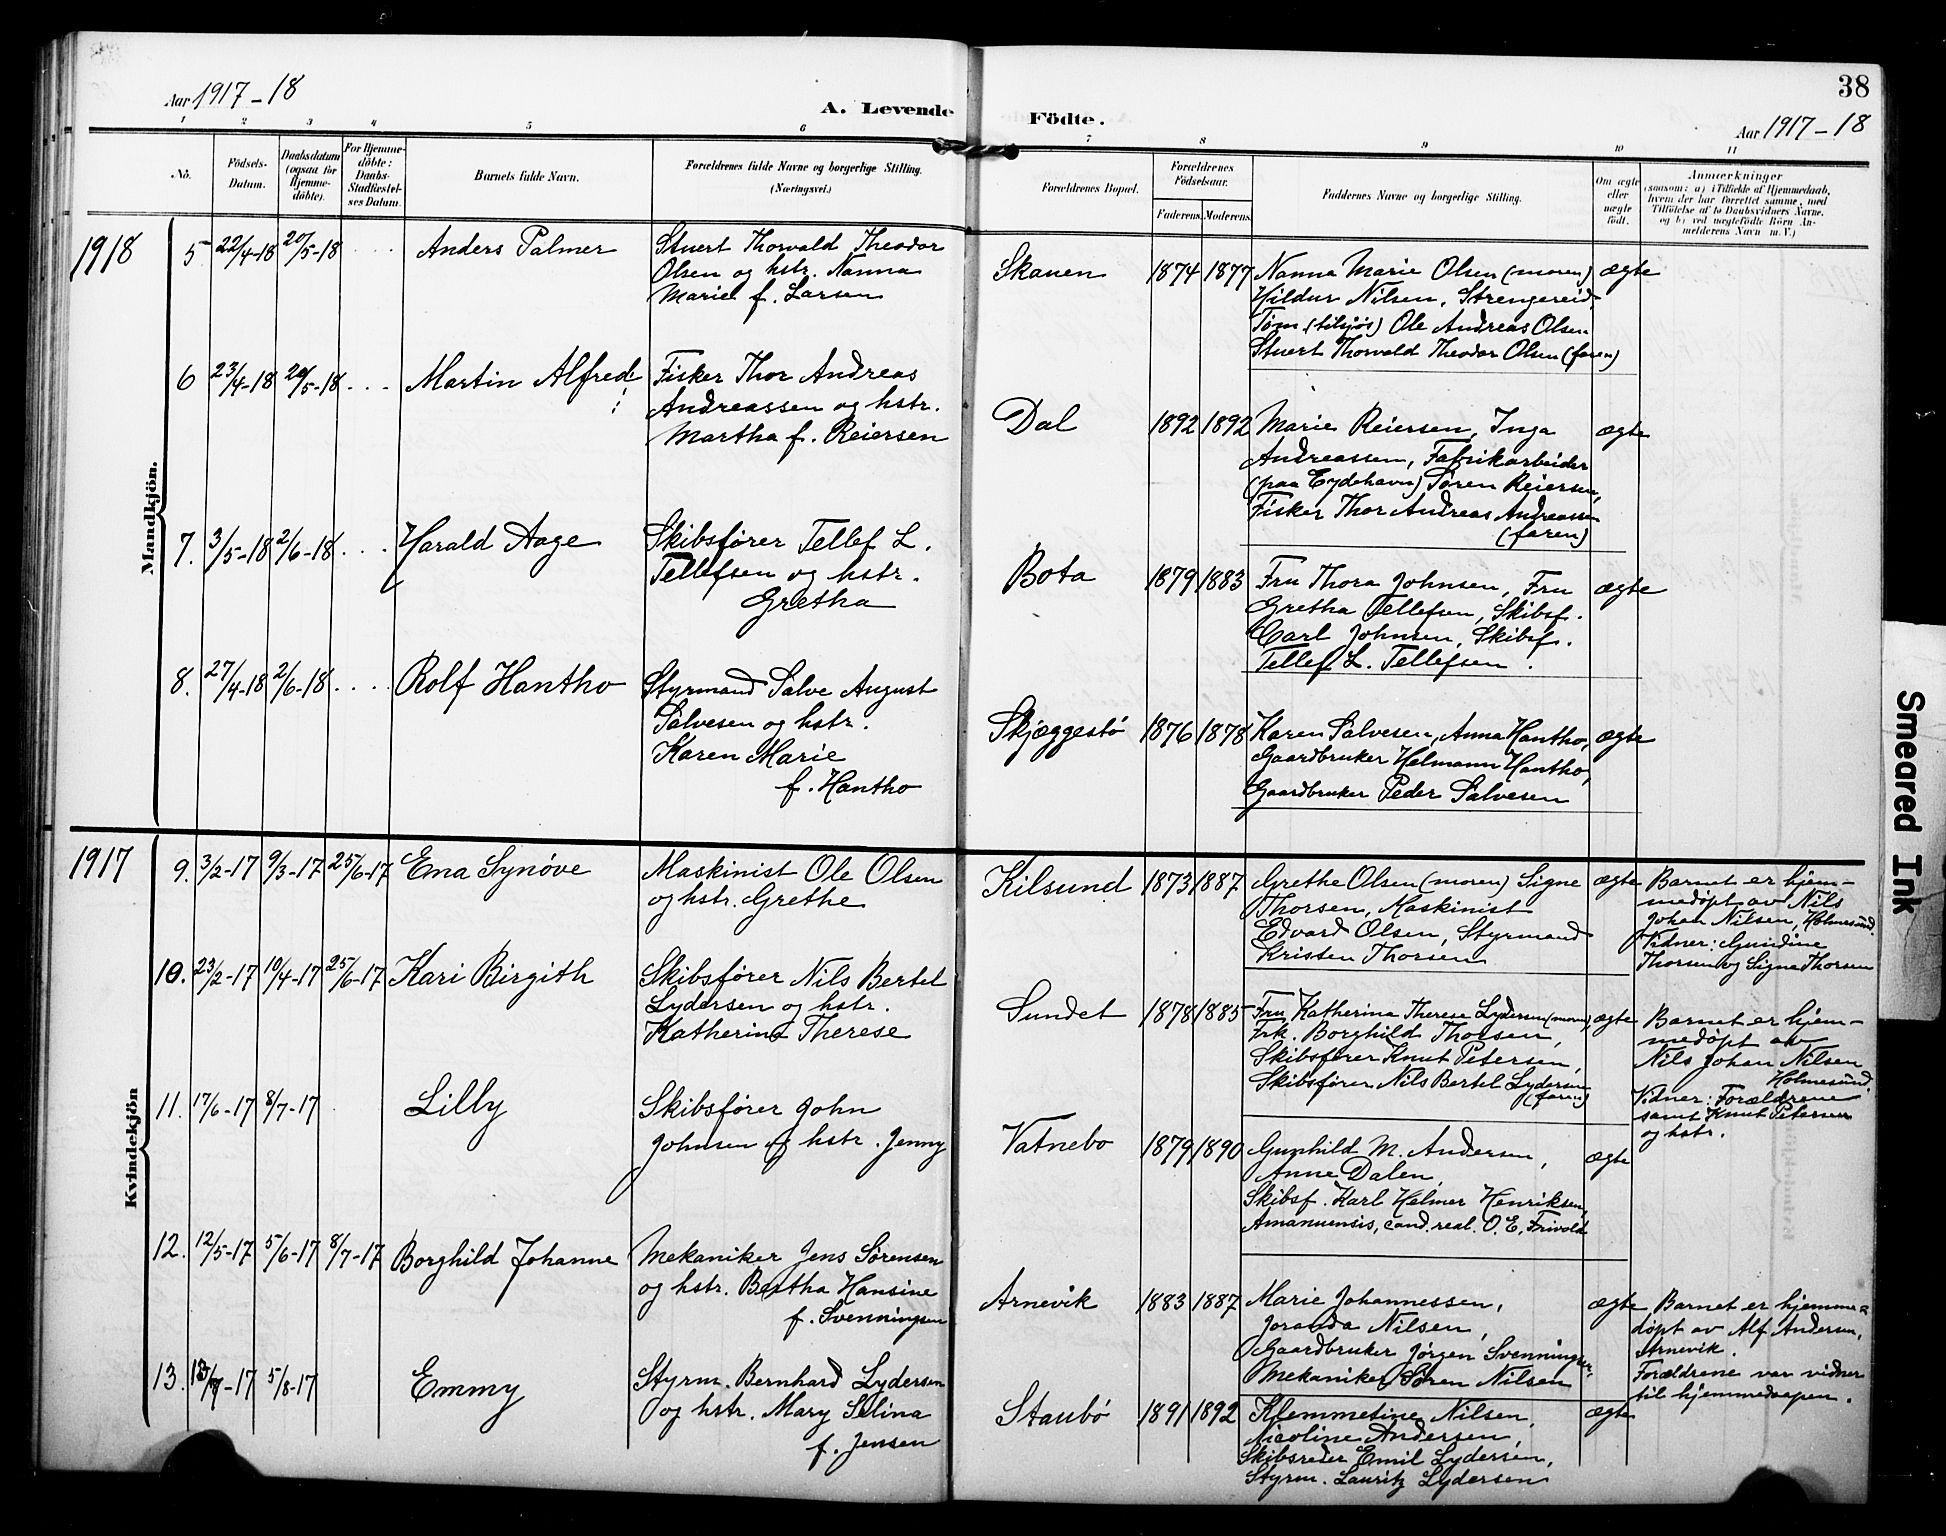 Aar 1917-18
A. Levende
Födte.
38
Aar 1917-18
1 2 3 4 5 6 7 8 9 10 11
No.
Födsels-
Datum.
Daabsdatum
(ogsaa for
Hjemme-
döbte).
For Hjemme-
döbte:
Daabs-
Stadfæstel-
ses Datum.
Barnets fulde Navn.
Forældrenes fulde Navne og borgerlige Stilling.
(Næringsvei.)
Forældrenes Bopæl.
Forældrenes
Födselsaar.
Faderens. Moderens.
Faddernes Navne og borgerlige Stilling.
Om ægte
eller
uægte
födt.
Anmærkninger
(saasom: a) i Tilfælde af Hjemmedaab,
hvem der har forrettet samme, med
Tilföielse af to Daabsvidners Navne.
og b) ved uægtefödte Börn An-
melderens Navn m. V.)
Mandkjön.
1918
5 22/4-18 20/5-18 Anders Palmer
Stuert Thorvald Theodor
Olsen og hstr. Nanna
Marie f. Larsen
Skauen 1874 1877
Nanna Marie Olsen (moren)
Hildur Nilsen, Strengereid,
Tøm. (tilsjøs) Ole Andreas Olsen
Stuert Thorvald Theodor Olsen (faren)
ægte
6 23/4-18 20/5-18 Martin Alfred
Fisker Thor Andreas
Andreassen og hstr.
Martha f. Reiersen
Dal 1892 1892
Marie Reiersen, Inga
Andreassen, Fabrikarbeider
(paa Eydehavn) Søren Reiersen,
Fisker Thor Andreas Andreassen
(faren)
ægte
7. 3/5-18 2/6-18 Harald Aage
Skibsfører Tellef L.
Tellefsen og hstr.
Gretha
Bota 1879 1883
Fru Thora Johnsen, Fru
Gretha Tellefsen, Skibsf.
Carl Johnsen, Skibsf.
Tellef L. Tellefsen.
ægte
8. 27/4-18 2/6-18 Rolf Hantho
Styrmand Salve August
Salvesen og hstr.
Karen Marie
f. Hantho
Skjæggestø 1876 1878
Karen Salvesen, Anna Hantho,
Gaardbruker Helmann Hantho,
Gaardbruker Peder Salvesen
ægte
Kvindekjön
1917
9. 3/2-17 9/3-17 25/6-17 Ema Synøve
Maskinist Ole Olsen
og hstr. Grethe
Kilsund 1873 1887
Grethe Olsen (moren) Signe
Thorsen, Maskinist
Edvard Olsen, Styrmand
Kristen Thorsen
ægte
Barnet er hjem-
medøpt av Nils
Johan Nilsen, Holmesund.
Vidner: Gundine
Thorsen og Signe Thorsen
10. 23/2-17 10/4-17 25/6-17 Kari Birgith
Skibsfører Nils Bertel
Lydersen og hstr.
Katherina Therese
Sundet 1878 1885
Fru Katherina Therese Lydersen (moren)
Frk. Borghild Thorsen,
Skibsfører Knut Petersen,
Skibsfører Nils Bertel Lydersen
(faren)
ægte
Barnet er hjem-
medøpt av
Nils Johan Nilsen
Holmesund.
Vidner: Forældrene
samt Knut Petersen
og hstr.
11. 17/6-17 8/7-17 Lilly
Skibsfører John
Johnsen og hstr. Jenny
Vatnebo 1879 1890
Gunhild M. Andersen,
Anne Dalen,
Skibsf. Karl Helmer Henriksen,
Amanuensis, cand. real. O. E. Frivold
ægte
12. 12/5-17 5/6-17 8/7-17 Borghild Johanne
Mekaniker Jens Sørensen
og hstr. Bertha Hansine
f. Svenningsen
Arnevik 1883 1887
Marie Johannessen,
Joranda Nilsen,
Gaardbruker Jørgen Svenningsen
Mekaniker Søren Nilsen
ægte
Barnet er hjemme-
døpt av Alf Andersen,
Arnevik.
Forældrene var vidner
til hjemmedaapen.
13. 13/7-17 5/8-17 Emmy
Styrm. Bernhard Lydersen
og hstr. Mary Selina
f. Jensen
Staubø 1891 1892
Klemmetine Nilsen,
Nicoline Andersen,
Skibsreder Emil Lydersen,
Styrm. Lauritz Lydersen
ægte
Smeared Ink